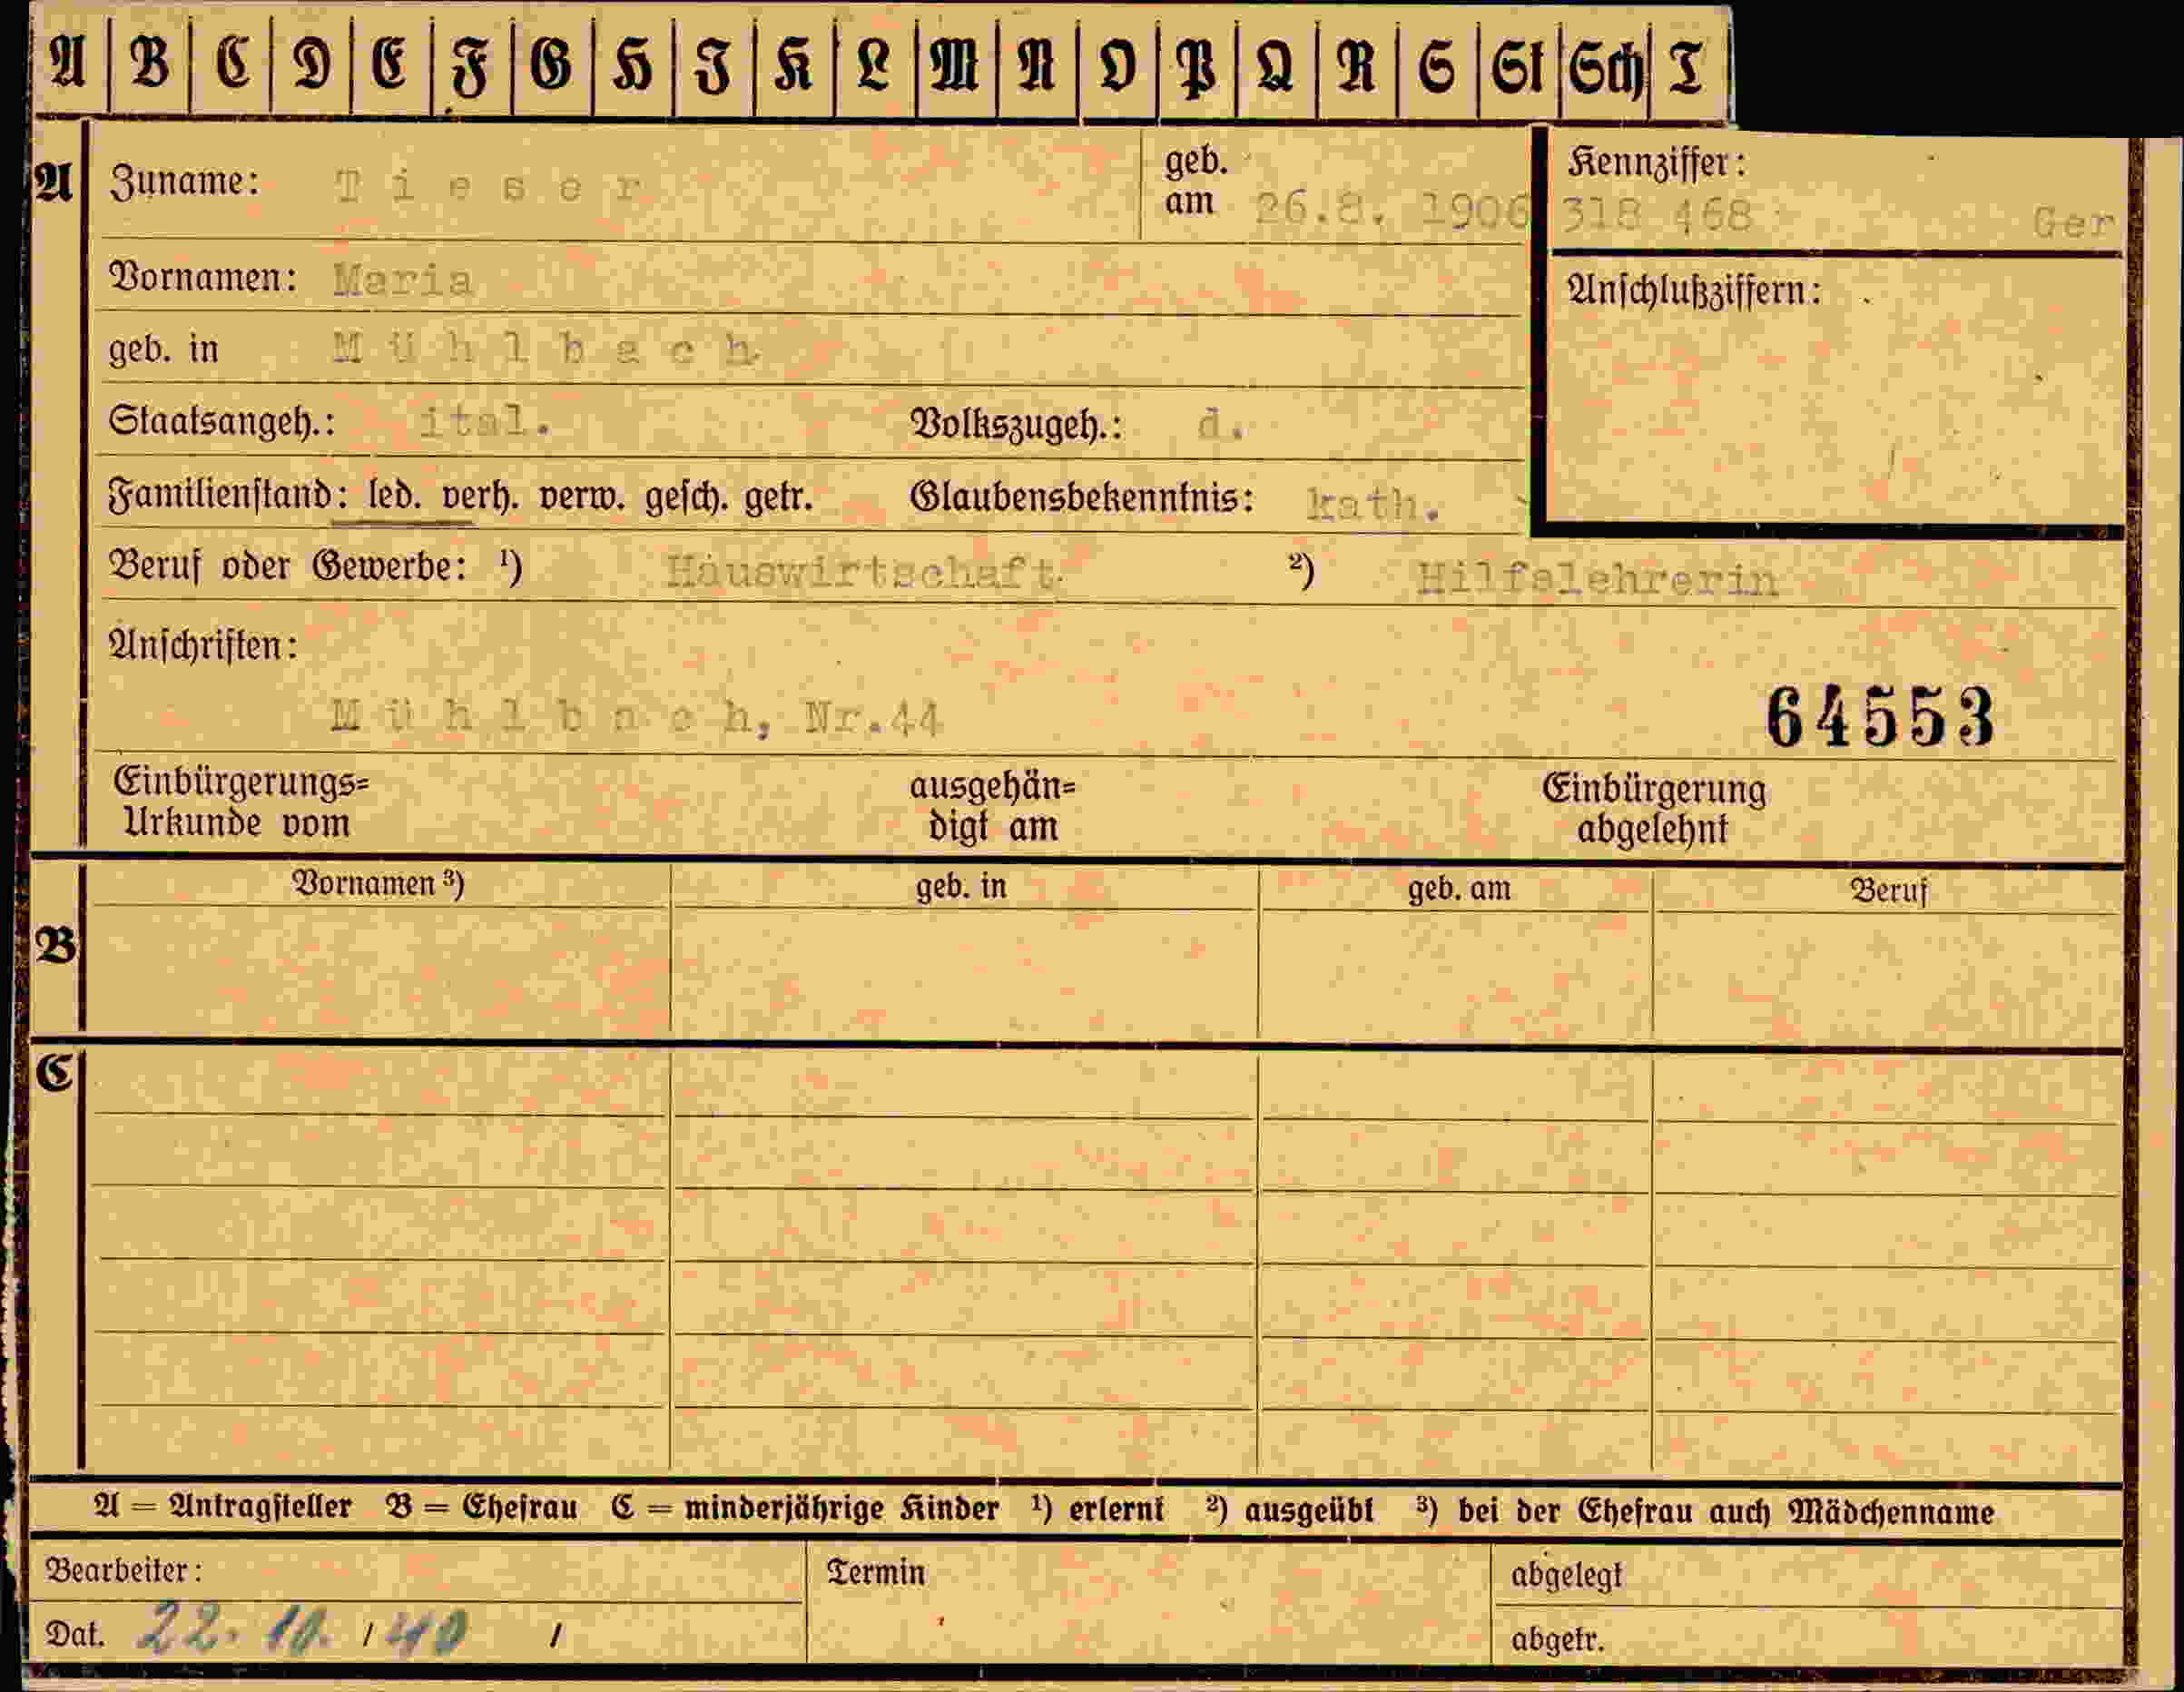 A B C D E F G H I K L M N O P Q R S St Sch T
A Zuname: Tieser geb. am 26.8. 1906 Kennziffer: 318 468 Ger
Vornamen: Maria Anschlußziffern:
geb. in Mühlbach
Staatsangeh.: ital. Volkszugeh.: d.
Familienstand: led. verh. verw. gesch. getr. Glaubensbekenntnis: kath.
Beruf oder Gewerbe: ¹) Hauswirtschaft ²) Hilfslehrerin
Anschriften:
Mühlbach, Nr.44 64553
Einbürgerungs= ausgehän= Einbürgerung
Urkunde vom digt am abgelehnt
Vornamen ³) geb. in geb. am Beruf
B
C
A = Antragsteller B = Ehefrau C = minderjährige Kinder ¹) erlernt ²) ausgeübt ³) bei der Ehefrau auch Mädchenname
Bearbeiter: Termin abgelegt
Dat. 22. 10. / 40 / abgetr.